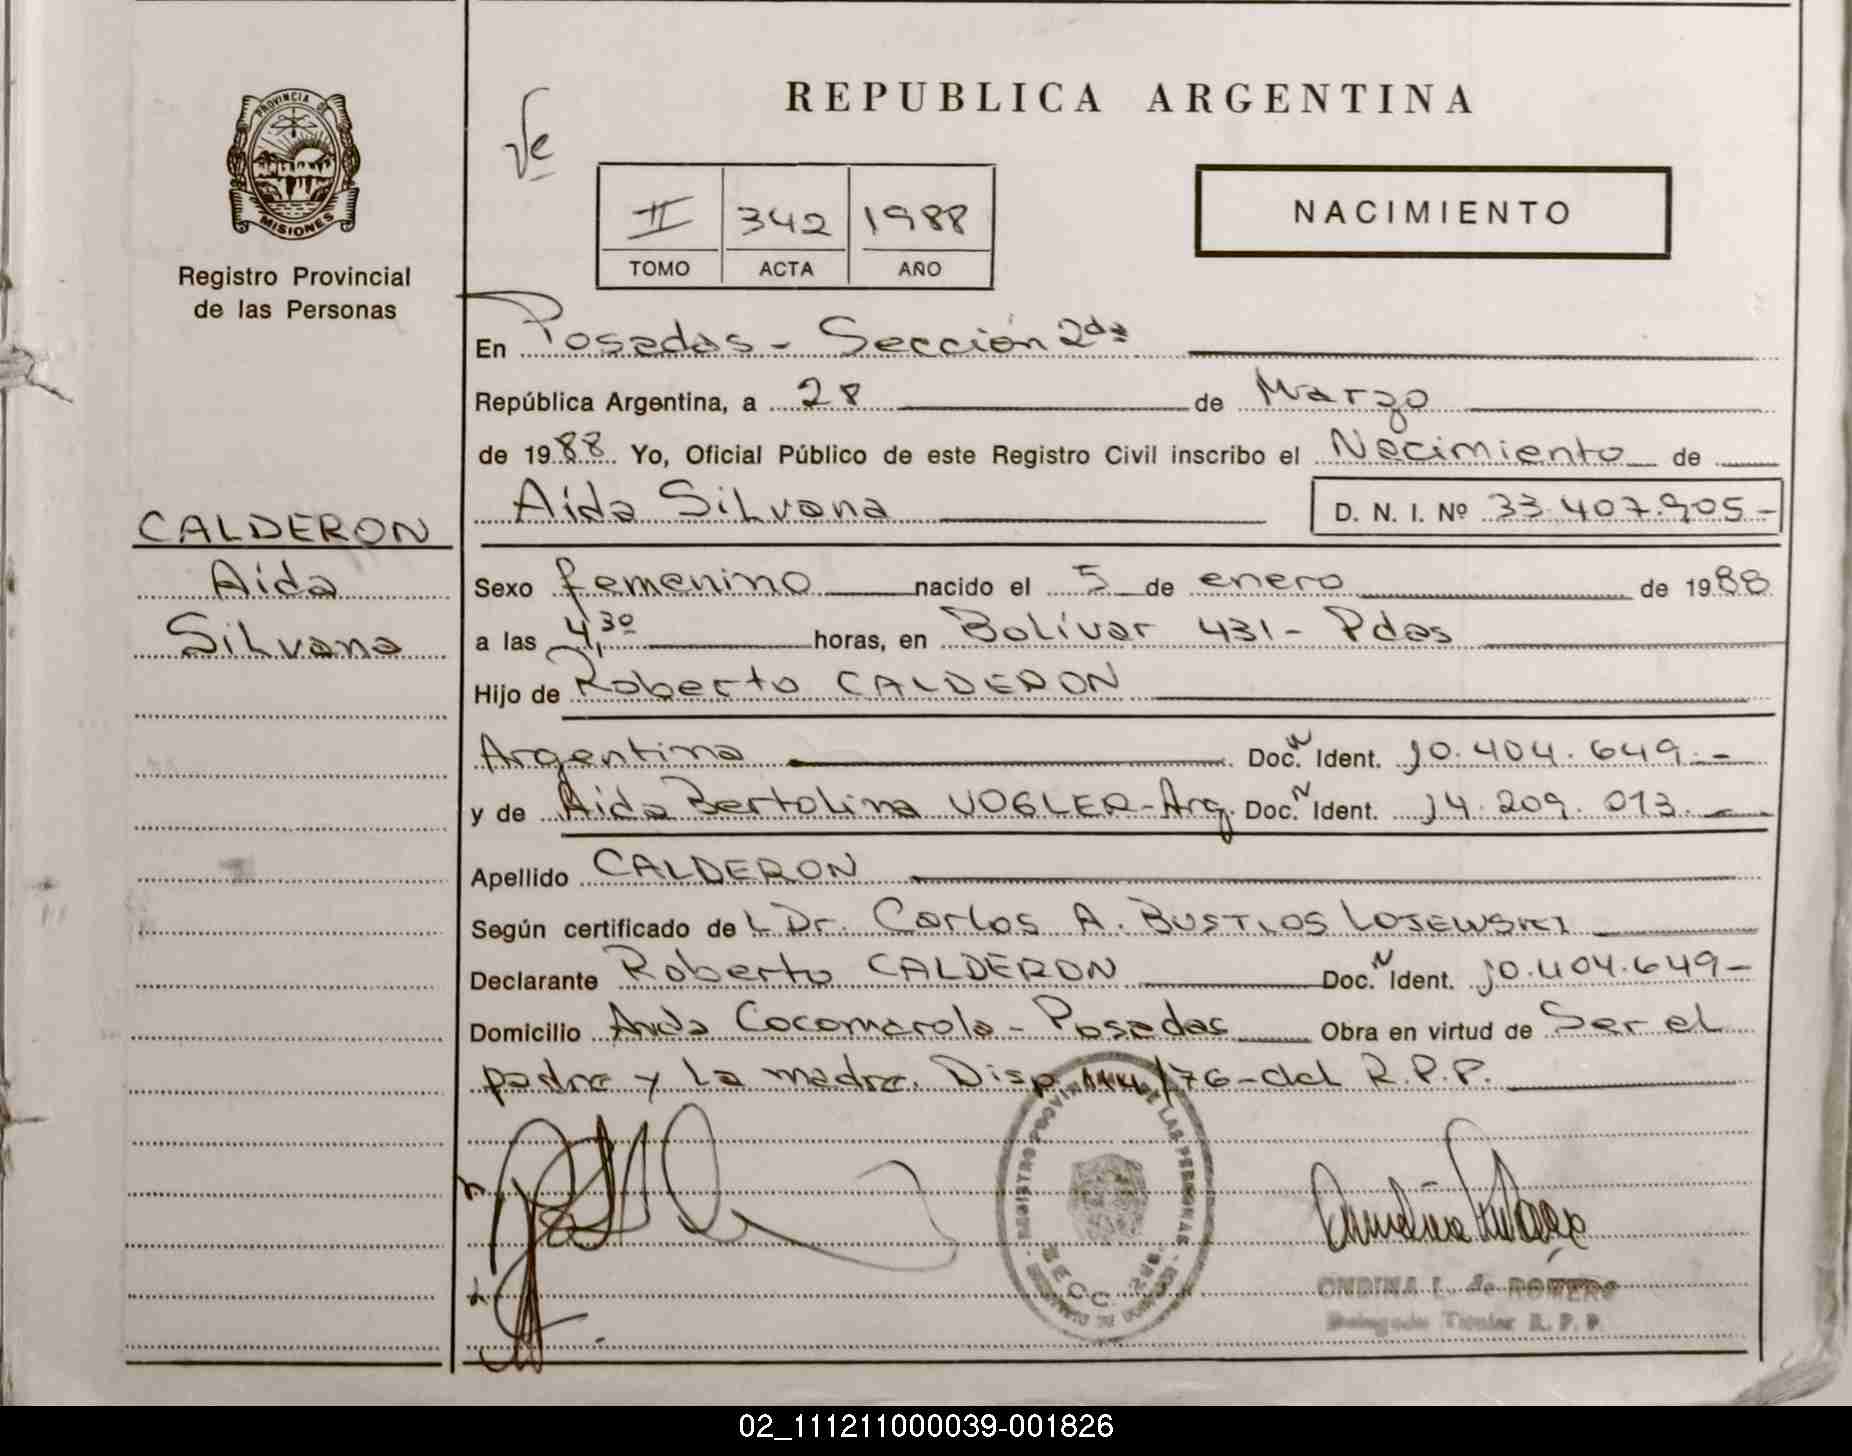 PROVINCIA DE
MISIONES
Registro Provincial
de las Personas
CALDERON
Aida
Silvana
REPUBLICA ARGENTINA
II 342 1988
TOMO ACTA AÑO
NACIMIENTO
En Posadas - Sección 2da
República Argentina, a 28 de Marzo
de 1988 Yo, Oficial Público de este Registro Civil inscribo el Nacimiento de
Aida Silvana D. N. I. Nº 33.407.905-
Sexo femenino nacido el 5 de enero de 1988
a las 4,30 horas, en Bolívar 431- Pdas
Hijo de Roberto CALDERON
Argentina Doc. N Ident. 10.404.649.-
y de Aida Bertolina VOGLER-Arg. Doc. N Ident. 14.209.013.-
Apellido CALDERON
Según certificado de L Dr. Carlos A. BUSTLOS LOJEWSKI
Declarante Roberto CALDERON Doc. N Ident. 10.404.649-
Domicilio Avda Cocomarola - Posadas Obra en virtud de Ser el
padre y la madre. Disp. /76-del R.P.P.
REGISTRO PROVINCIAL DE LAS PERSONAS
SECC. 2da
ONDINA L. de ROMERO
Delegada Titular R. P. P.
02_111211000039-001826